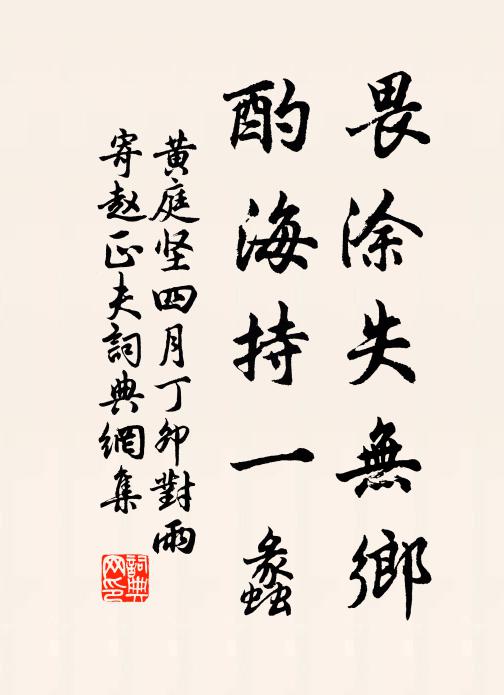 畏涂失無鄉
酌海持一蠡
黄庭坚四月丁卯對雨
寄赵正夫詞典網集
詞典
网印